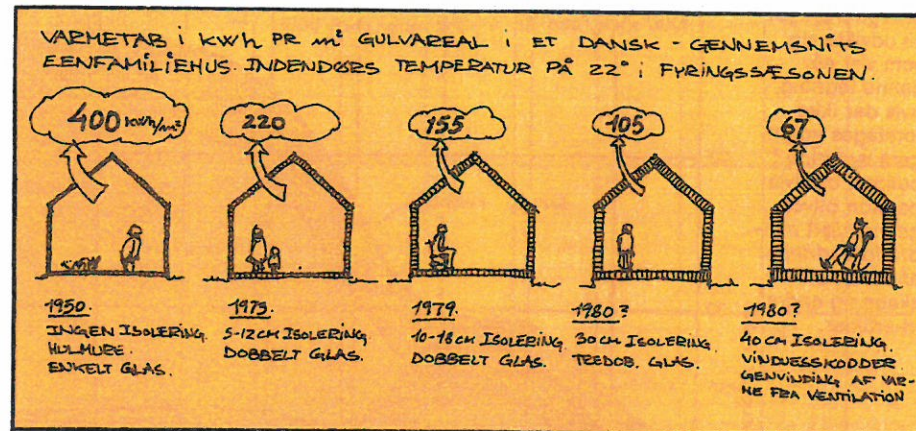 VARMETAB i KWh PR m² GULVAREAL i ET DANSK - GENNEMSNITS
EENFAMILIEHUS. INDENDØRS TEMPERATUR PÅ 22° i FYRINGSSÆSONEN.
400 kWh/m²
220
155
105
67
1950.
INGEN ISOLERING.
HULMURE.
ENKELT GLAS.
1975.
5-12 CM ISOLERING
DOBBELT GLAS.
1979.
10-18 CM ISOLERING.
DOBBELT GLAS.
1980?
30 CM ISOLERING.
TREDOB. GLAS.
1980?
40 CM ISOLERING.
VINDUESSKODDER
GENVINDING AF VAR-
ME FRA VENTILATION